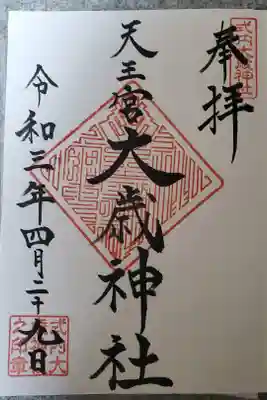 奉拝
式内大歳神社
天王宮大歳神社
令和三年四月二十九日